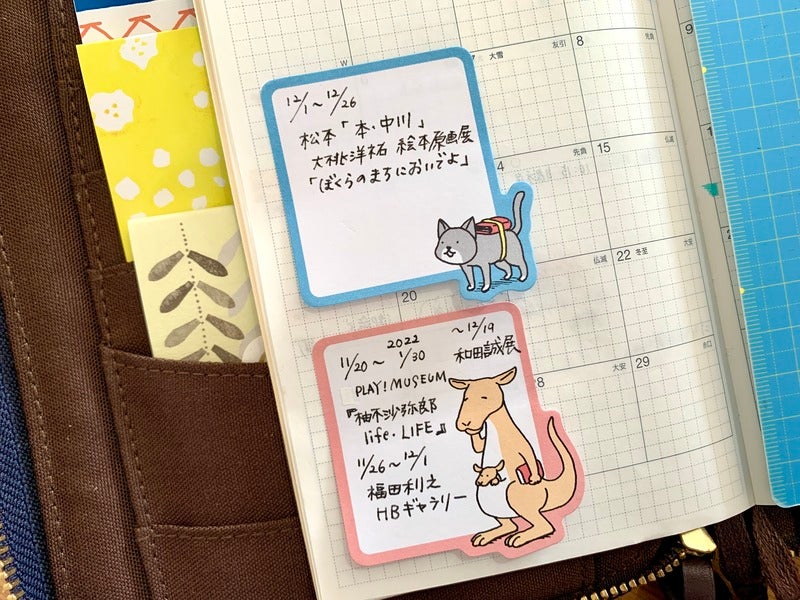 W
7 大雪 友引
8 先負
9
12/1～12/26
松本「本・中川」
大桃洋祐 絵本原画展
「ぼくらのまちにおいでよ」
4 先負
15 仏滅
仏滅
22 冬至 大安
20
2022
11/20～1/30
～12/19
和田誠展
PLAY! MUSEUM
『柚木沙弥郎
life・LIFE』
11/26～12/1
福田利之
HBギャラリー
8 大安
29 赤口